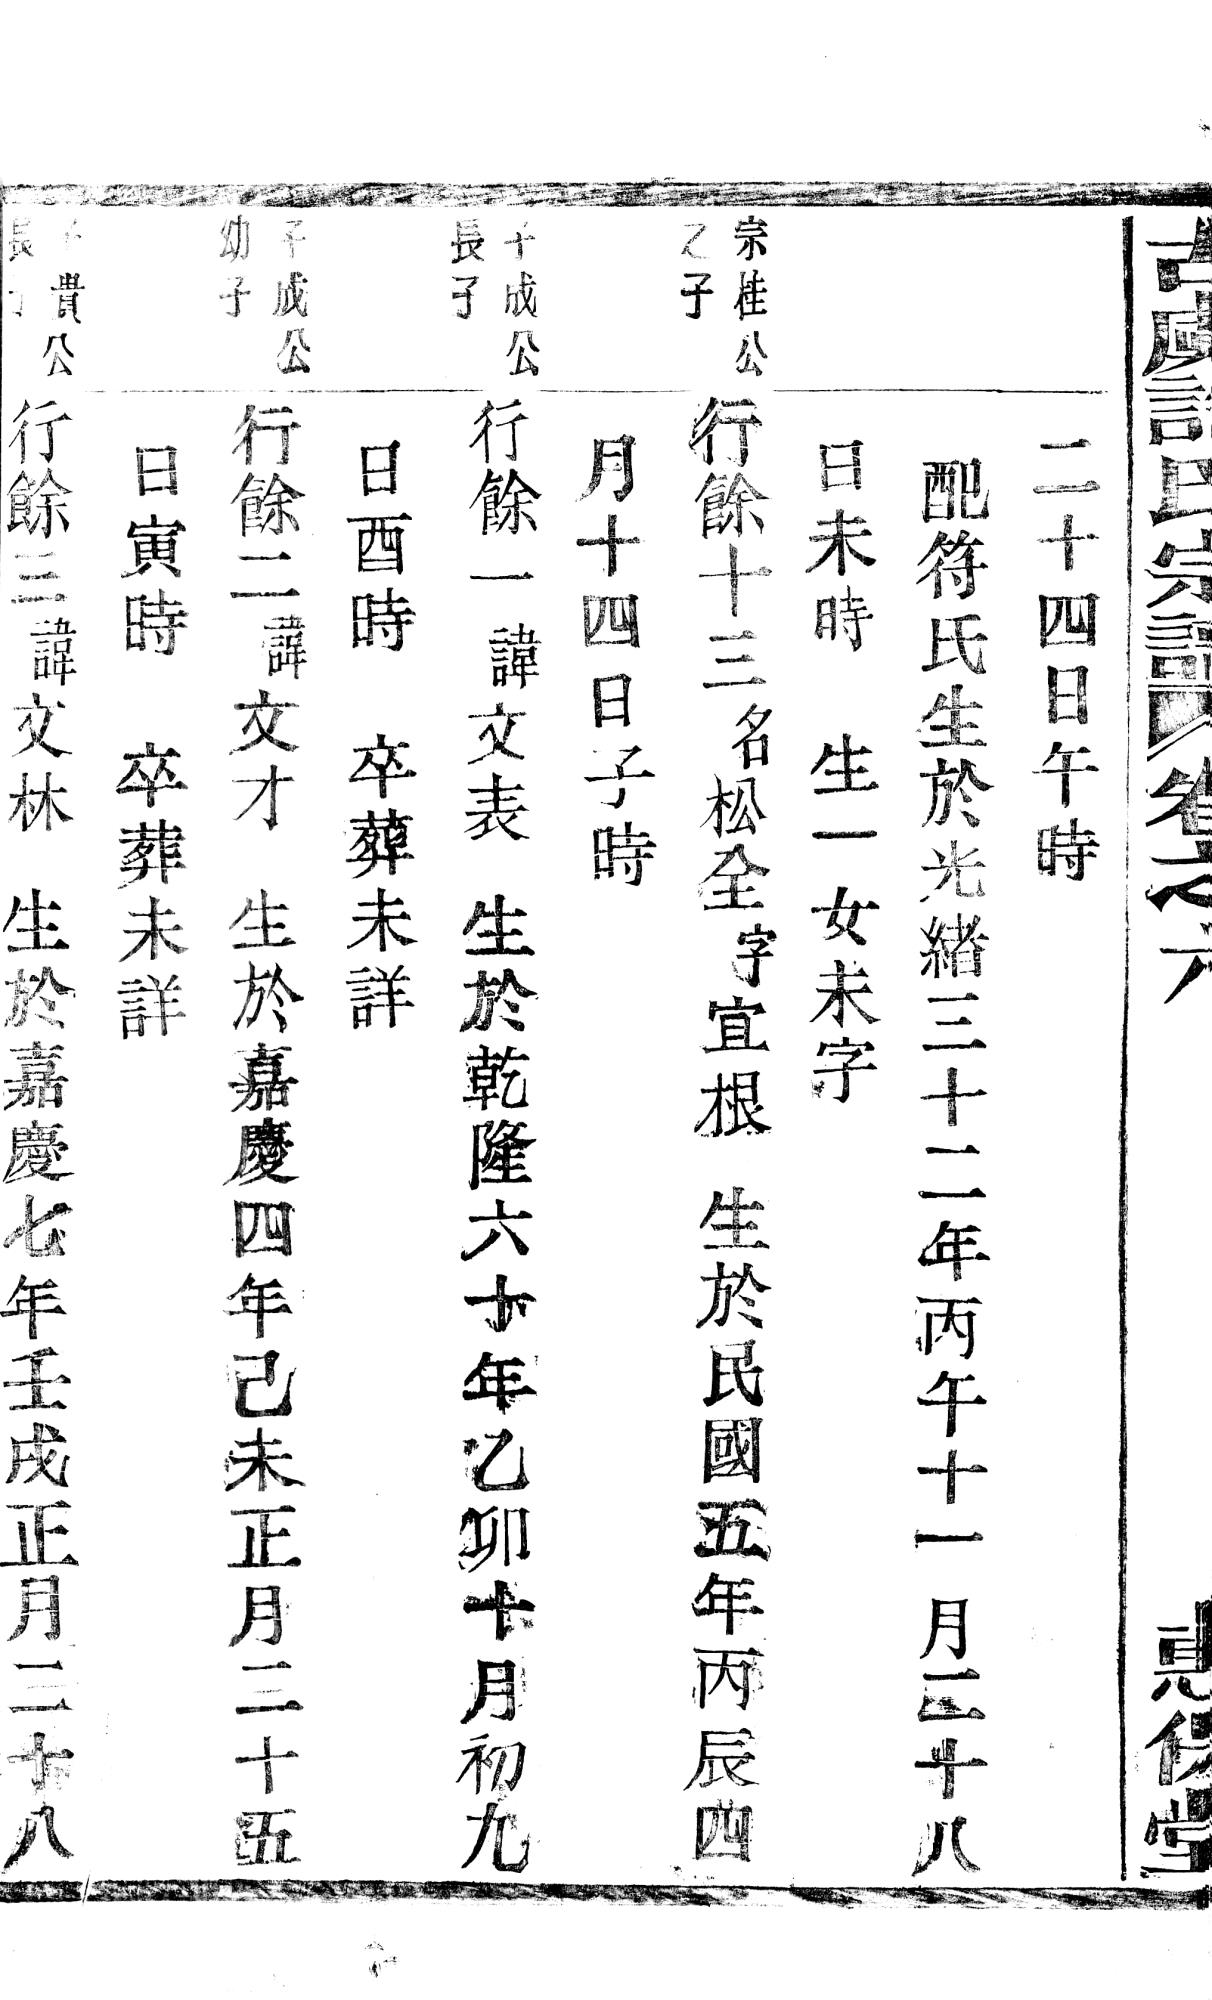 氏宗譜 卷之六
堂
二十四日午時
配符氏生於光緒三十二年丙午十一月二十八
日未時 生一女未字
宗桂公之子
行餘十三名松全字宜根 生於民國五年丙辰四
月十四日子時
子成公長子
行餘一諱文表 生於乾隆六十年乙卯十月初九
日酉時 卒葬未詳
子成公幼子
行餘二諱文才 生於嘉慶四年己未正月二十五
日寅時 卒葬未詳
子貴公長子
行餘三諱文林 生於嘉慶七年壬戌正月二十八